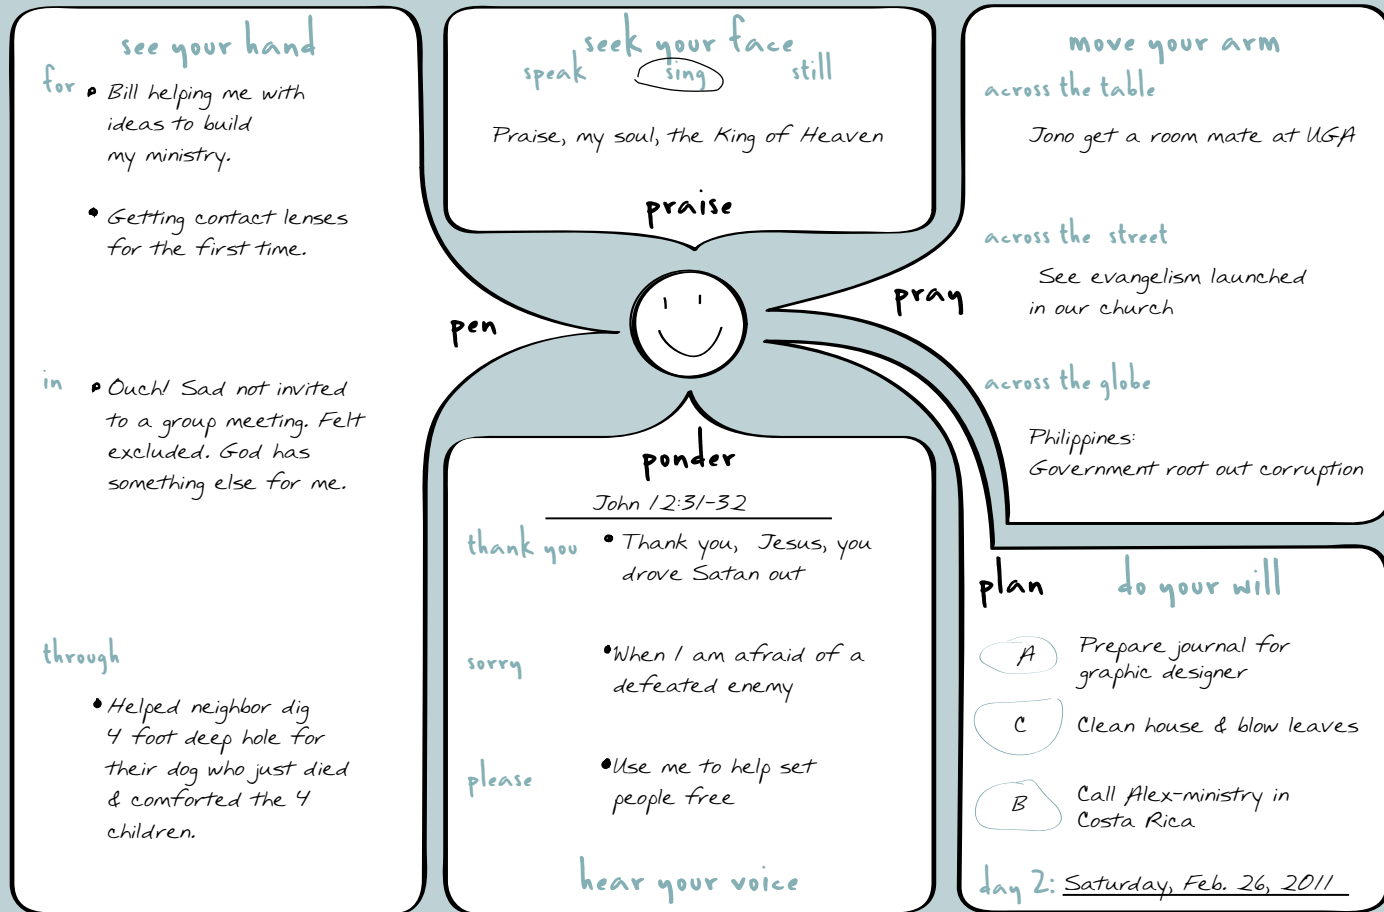 see your hand
for
• Bill helping me with
ideas to build
my ministry.
• Getting contact lenses
for the first time.
in
• Ouch! Sad not invited
to a group meeting. Felt
excluded. God has
something else for me.
through
• Helped neighbor dig
4 foot deep hole for
their dog who just died
& comforted the 4
children.
pen
seek your face
speak sing still
Praise, my soul, the King of Heaven
praise
ponder
John 12:31-32
thank you
• Thank you, Jesus, you
drove Satan out
sorry
• When I am afraid of a
defeated enemy
please
• Use me to help set
people free
hear your voice
move your arm
across the table
Jono get a room mate at UGA
across the street
See evangelism launched
in our church
pray
across the globe
Philippines:
Government root out corruption
plan do your will
A Prepare journal for
graphic designer
C Clean house & blow leaves
B Call Alex-ministry in
Costa Rica
day 2: Saturday, Feb. 26, 2011